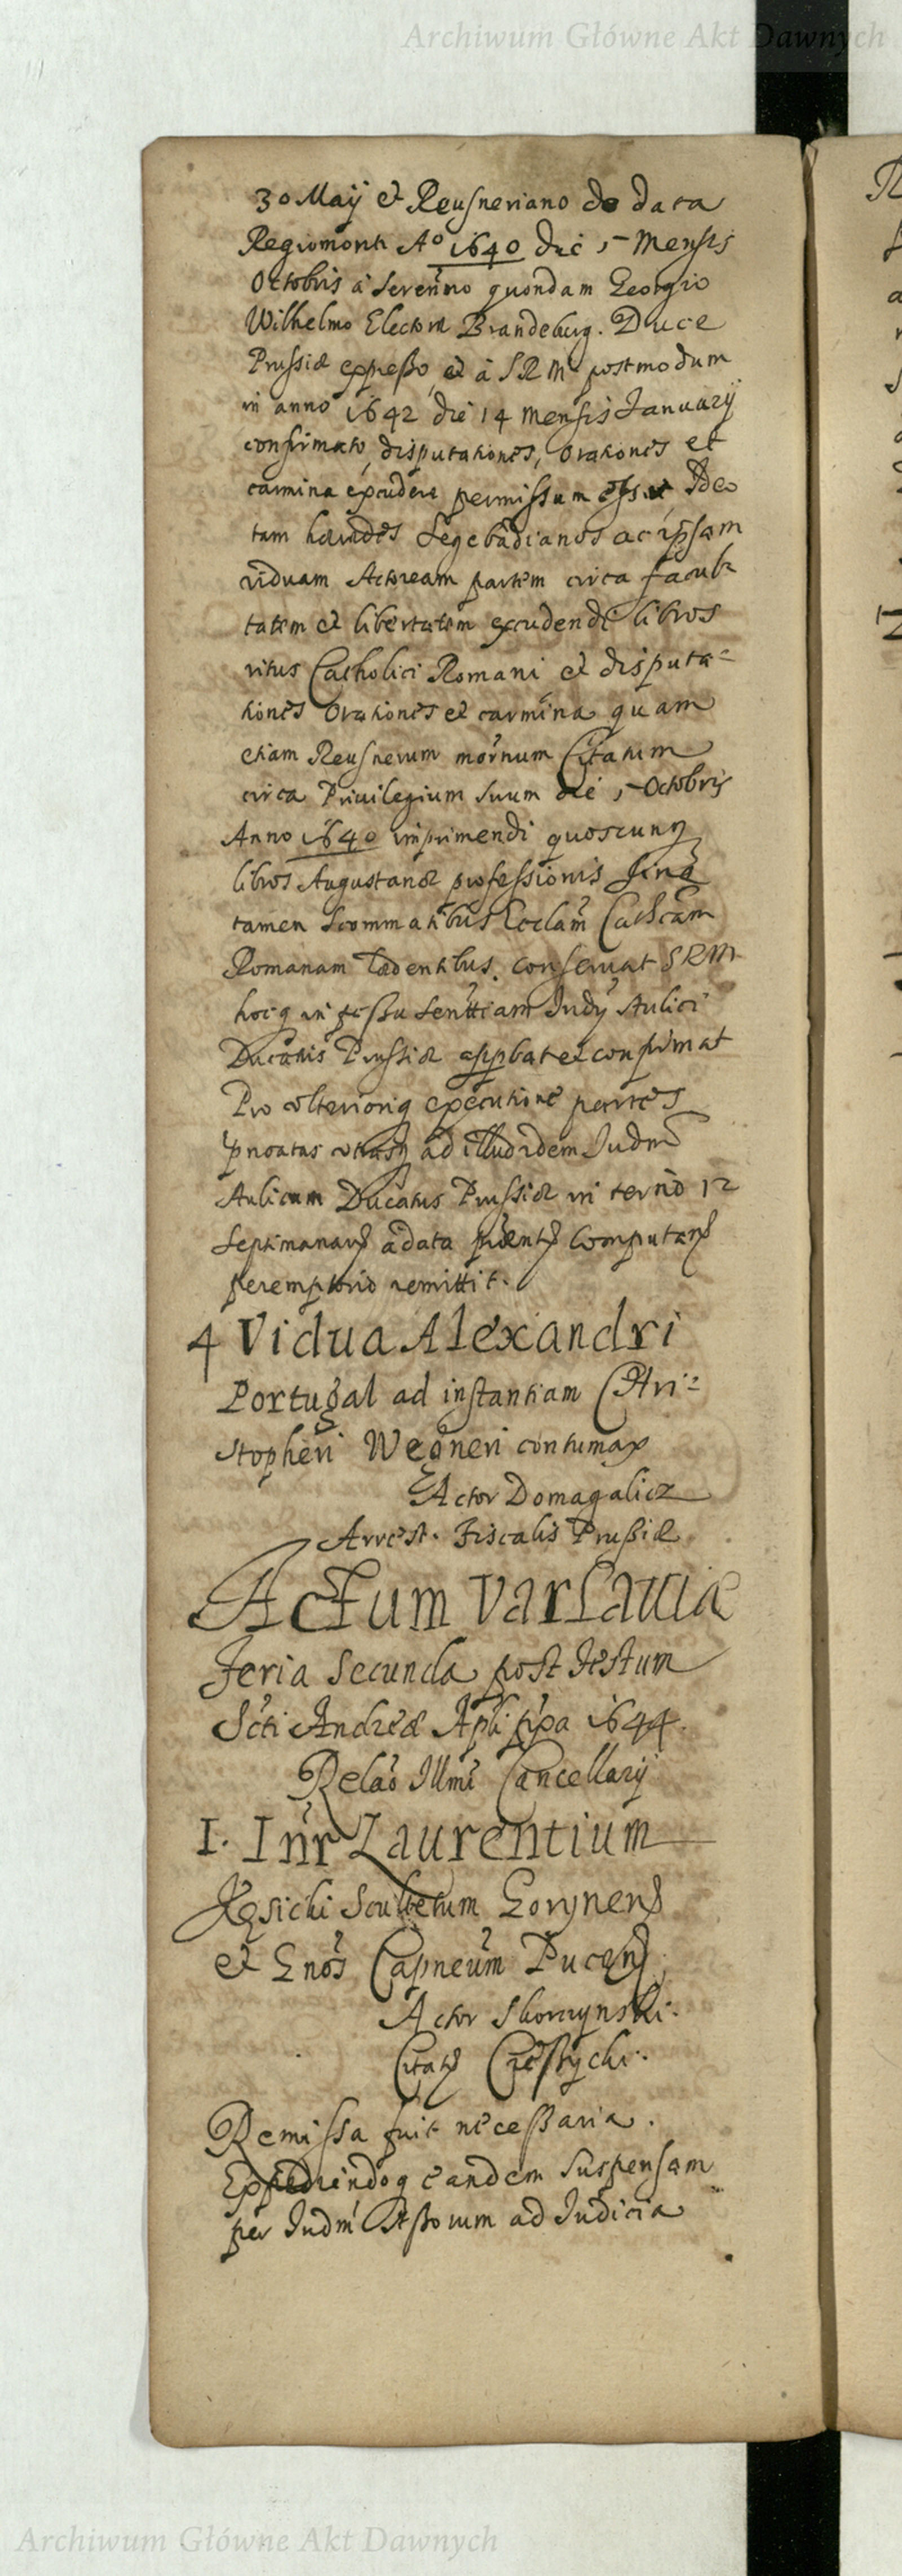 Archiwum Główne Akt Dawnych
30 Maij et Reusneriano de data
Regiomonti Aº 1640 die 5 Mensis
Octobris à Serenmo quondam Georgio
Wilhelmo Electore Brandeburg. Duce
Prussiæ expresso, et à SRM postmodum
in anno 1642 die 14 mensis Januarij
confirmato, disputationes, orationes et
carmina excudere permissum esset Ideo
tam hæredes Segebadianos ac ipsam
viduam Actoream partem circa facul-
tatem et libertatem excudendi libros
ritus Catholici Romani et disputa-
tiones Orationes et carmina quam
etiam Reusnerum Citatum
circa Privilegium suum die 5 Octobris
Anno 1640 imprimendi quoscunq
libros Augustanæ professionis sine
tamen scommatibus Ecclam Cathcam
Romanam lædentibus conservat SRM
hocq in passu senttiam Judy Aulici
Ducatus Prussiæ approbat et confirmat
Pro ulterioriq executione partes
pnoatas utrasq ad illud idem Judm
Aulicum Ducatus Prussiæ in termo 12
Septimanarum a data pntium Computan
peremptorio remittit.
4 Vidua Alexandri
Portugal ad instantiam Chri-
stopheri Wegneri contumax
Actor Domagalicz
Arrest. Fiscalis Prussiæ
Actum Varsaviæ
Feria Secunda post Festum
Scti Andreæ Apli pxa 1644.
Relao Illmi Cancellarij
1. Intr Laurentium
Kęsicki Scultetum Gorynens
et Gnos Capneum Pucens
Actor Skorzynski.
Citat Czestycki.
Remissa fuit necessaria.
Expediendoq eandem suspensam
per Judm Assorum ad Judicia
Archiwum Główne Akt Dawnych